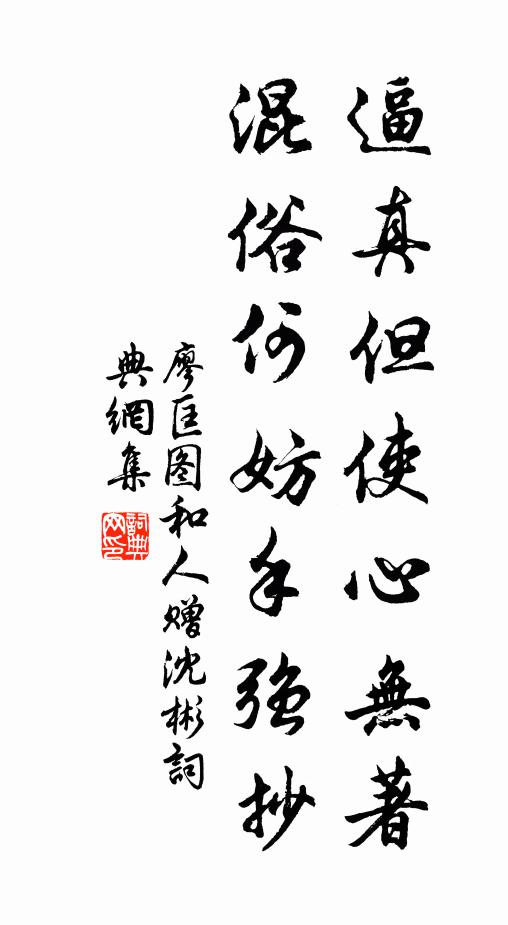 逼真但使心無著
混俗何妨手強抄
廖匡图和人赠沈彬詞
典網集
詞典網印